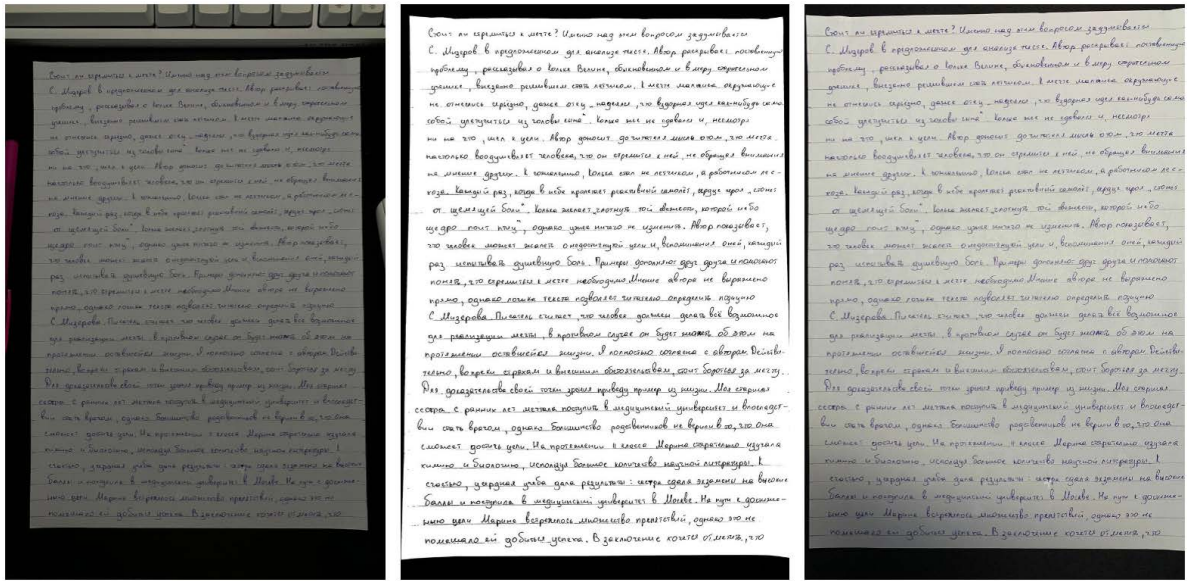 Стоит ли стремиться к мечте? Именно над этим вопросом задумывается
С. Мизеров в предложенном для анализа тексте. Автор раскрывает поставленную
проблему, рассказывая о Кольке Велине, обыкновенном и в меру старательном
ученике, внезапно решившем стать лётчиком. К мечте мальчика окружающие
не отнеслись серьёзно, даже отец „надеялся, что вздорная идея как-нибудь сама
собой улетучится из головы сына". Колька же не сдавался и, несмотря
ни на что, шёл к цели. Автор доносит до читателя мысль о том, что мечта
настолько воодушевляет человека, что он стремится к ней, не обращая внимания
на мнение других. К сожалению, Колька стал не лётчиком, а работником лес-
хоза. Каждый раз, когда в небе пролетает реактивный самолёт, сердце героя „стонет
от щемящей боли". Колька желает „глотнуть той свежести, которой небо
щедро поит птиц", однако уже ничего не изменить. Автор показывает,
что человек может жалеть о недостигнутой цели и, вспоминая о ней, каждый
раз испытывать душевную боль. Примеры дополняют друг друга и помогают
понять, что стремиться к мечте необходимо. Мнение автора не выражено
прямо, однако логика текста позволяет читателю определить позицию
С. Мизерова. Писатель считает, что человек должен делать всё возможное
для реализации мечты, в противном случае он будет жалеть об этом на
протяжении оставшейся жизни. Я полностью согласна с автором. Действи-
тельно, вопреки страхам и внешним обстоятельствам, стоит бороться за мечту.
Для доказательства своей точки зрения приведу пример из жизни. Моя старшая
сестра с ранних лет мечтала поступить в медицинский университет и впоследст-
вии стать врачом, однако большинство родственников не верили в то, что она
сможет достичь цели. На протяжении 11 класса Марина старательно изучала
химию и биологию, используя большое количество научной литературы. К
счастью, усердная учёба дала результаты: сестра сдала экзамены на высокие
баллы и поступила в медицинский университет в Москве. На пути к достиже-
нию цели Марине встретилось множество препятствий, однако это не
помешало ей добиться успеха. В заключение хочется отметить, что